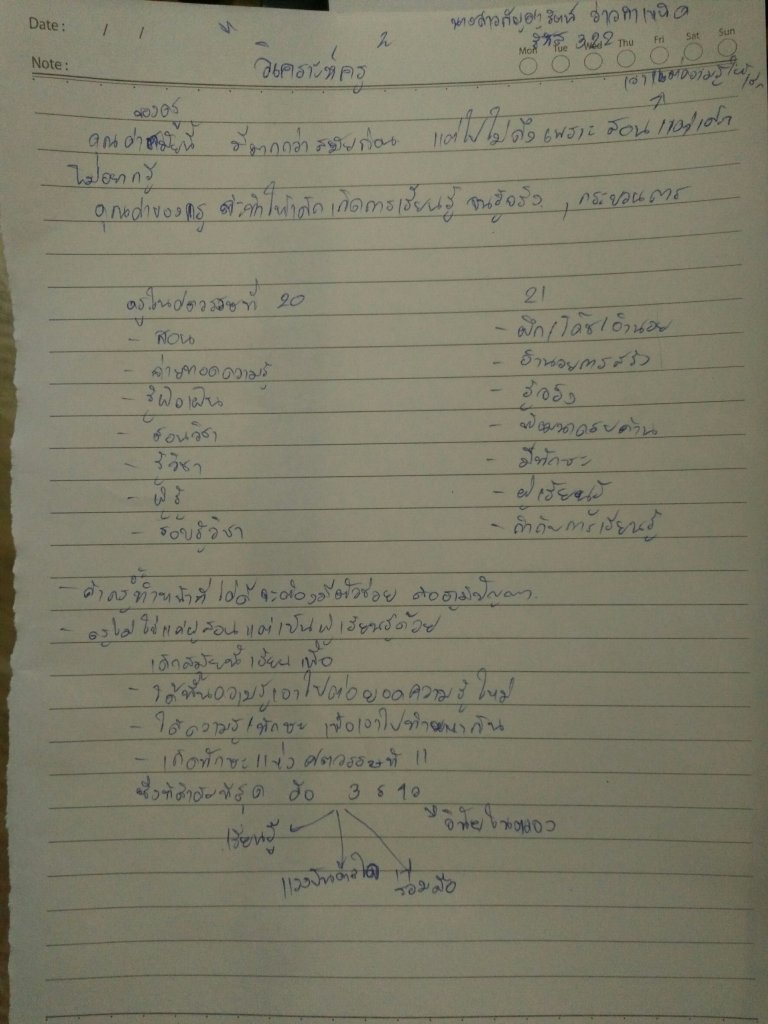 Date : / /
Note :
Mon Tue Wed Thu Fri Sat Sun
นางสาว
รหัส 322
"วิเคราะห์ครู"
เอาแต่ความรู้ให้เด็ก
ของครู
คุณค่าสมัยนี้ มีมากกว่าสมัยก่อน แต่ไปไม่ถึงเพราะสอนแต่เด็ก
ไม่อยากรู้
คุณค่าของครู จะทำให้เด็กเกิดการเรียนรู้ จนรู้จริง , กระบวนการ
ครูในศตวรรษที่ 20 21
- สอน - ฝึก/โค้ช/อำนวย
- ถ่ายทอดความรู้ - อำนวยการสร้าง
- รู้ - รู้จริง
- สอนวิชา - พัฒนาครบด้าน
- รู้วิชา - มีทักษะ
- ผู้รู้ - ผู้เรียนรู้
- รอบรู้วิชา - กำกับการเรียนรู้
- ถ้าครูทำหน้าที่ได้ดี จะต้องมีตัวช่วย คือภูมิปัญญา.
- ครูไม่ใช่แค่ผู้สอน แต่เป็นผู้เรียนรู้ด้วย
เด็กสมัยนี้ เรียนเพื่อ
- ได้พื้นความรู้เอาไปต่อยอดความรู้ใหม่
- ได้ความรู้/ทักษะ เพื่อเอาไปทำมาหากิน
- เกิดทักษะแห่งศตวรรษที่ 11
ซึ่งที่สำคัญที่สุด คือ 3 ร 1ว
เรียนรู้ แรงบันดาลใจ ร่วมมือ วินัยในตนเอง